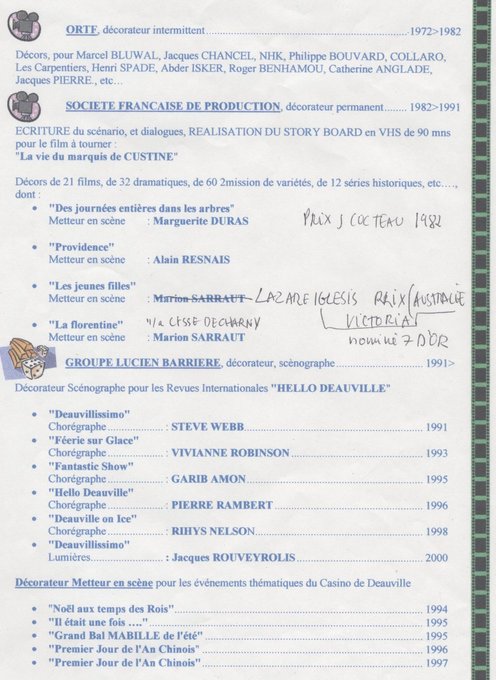 ORTF, décorateur intermittent....................1972>1982
Décors, pour Marcel BLUWAL, Jacques CHANCEL, NHK, Philippe BOUVARD, COLLARO,
Les Carpentiers, Henri SPADE, Abder ISKER, Roger BENHAMOU, Catherine ANGLADE,
Jacques PIERRE., etc…
SOCIETE FRANCAISE DE PRODUCTION, décorateur permanent........ 1982>1991
ECRITURE du scénario, et dialogues, REALISATION DU STORY BOARD en VHS de 90 mns
pour le film à tourner :
"La vie du marquis de CUSTINE"
Décors de 21 films, de 32 dramatiques, de 60 2mission de variétés, de 12 séries historiques, etc….,
dont :
• "Des journées entières dans les arbres"
Metteur en scène : Marguerite DURAS PRIX J COCTEAU 1982
• "Providence"
Metteur en scène : Alain RESNAIS
• "Les jeunes filles"
Metteur en scène : Marion SARRAUT LAZARE IGLESIS PRIX AUSTRALIE
VICTORIA
• "La florentine" DECHARNY
nominé 7 D'OR
Metteur en scène : Marion SARRAUT
GROUPE LUCIEN BARRIERE, décorateur, scènographe .................... 1991>
Décorateur Scénographe pour les Revues Internationales "HELLO DEAUVILLE"
• "Deauvillissimo"
Chorégraphe....................: STEVE WEBB....................1991
• "Féerie sur Glace"
Chorégraphe....................: VIVIANNE ROBINSON....................1993
• "Fantastic Show"
Chorégraphe....................: GARIB AMON....................1995
• "Hello Deauville"
Chorégraphe....................: PIERRE RAMBERT....................1996
• "Deauville on Ice"
Chorégraphe....................: RIHYS NELSON....................1998
• "Deauvillissimo"
Lumières....................: Jacques ROUVEYROLIS....................2000
Décorateur Metteur en scène pour les événements thématiques du Casino de Deauville
• "Noël aux temps des Rois"....................1994
• "Il était une fois …."....................1995
• "Grand Bal MABILLE de l'été"....................1995
• "Premier Jour de l'An Chinois"....................1996
• "Premier Jour de l'An Chinois"....................1997